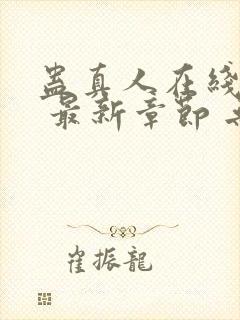 蛊真人在线
最新章节
崔振龍